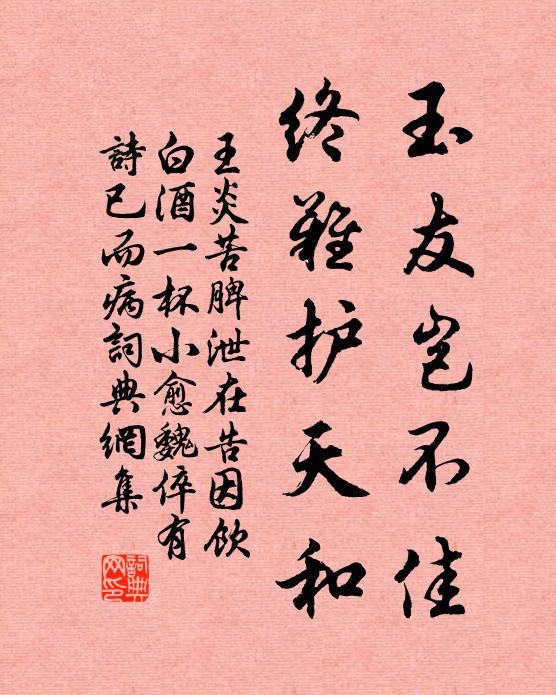 玉友岂不佳
终难护天和
王炎苦脾泄在告因饮
白酒一杯小愈魏倅有
詩已而病詞典網集
詞典
网印